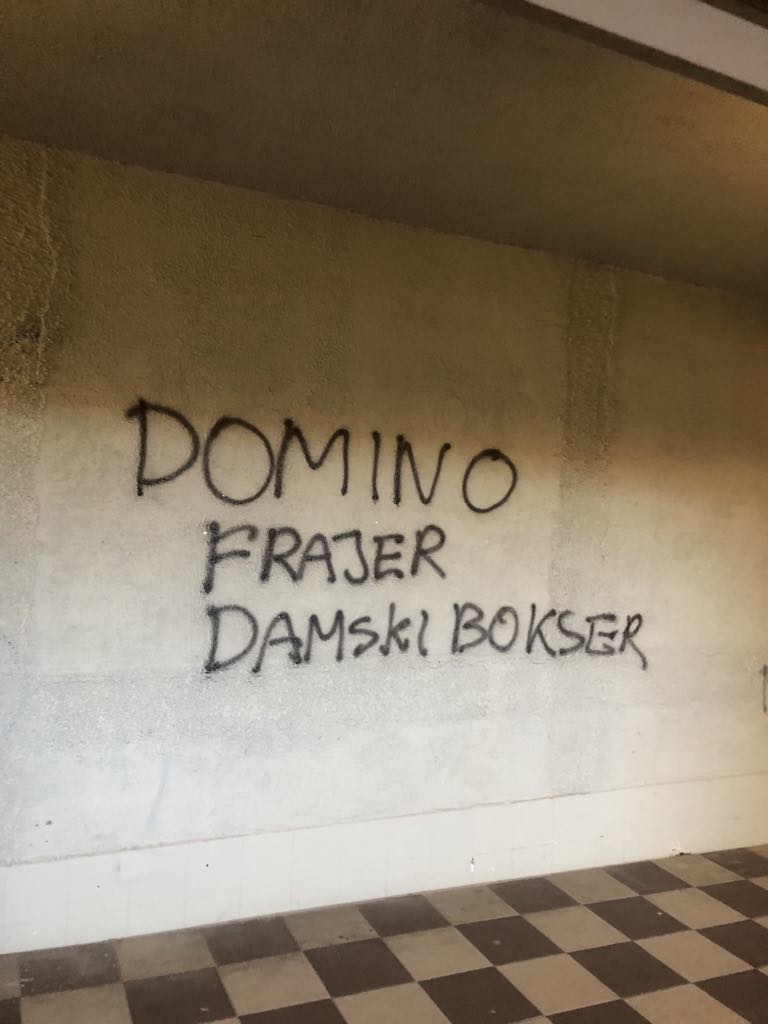 DOMINO
FRAJER
DAMSKI BOKSER